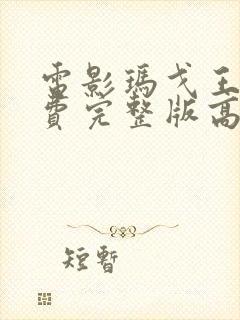 電影瑪戈王
費完整版高
短暫